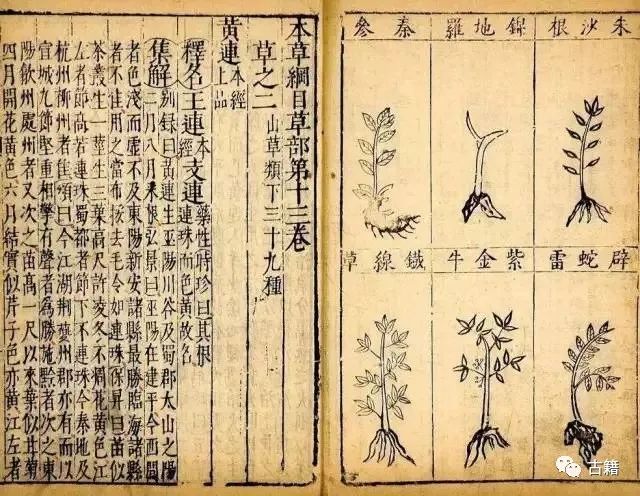 朱沙根
錦地羅
秦參
辟蛇雷
紫金牛
鐵線草
本草綱目草部第十三卷
草之二 山草類下三十九種
黃連 本經上品
釋名 王連 本經 支連 藥性 時珍曰其根連珠而色黃故名
集解 別錄曰黃連生巫陽川谷及蜀郡太山之陽
二月八月采根弘景曰巫陽在建平今西間
者色淺而虛不及東陽新安諸縣最勝臨海諸縣
者不佳用之當布挼去毛令如連珠保昇曰苗似
茶叢生一莖生三葉高尺許凌冬不凋花黃色江
左者節高若連珠蜀都者節下不連珠今秦地及
杭州柳州者佳頌曰今江湖荊夔州郡亦有而以
宣城九節堅重相擊有聲者為勝施黔者次之東
陽歙州處州者又次之苗高一尺以來葉似甘菊
四月開花黃色六月結實似芹子色亦黃江左者
古籍